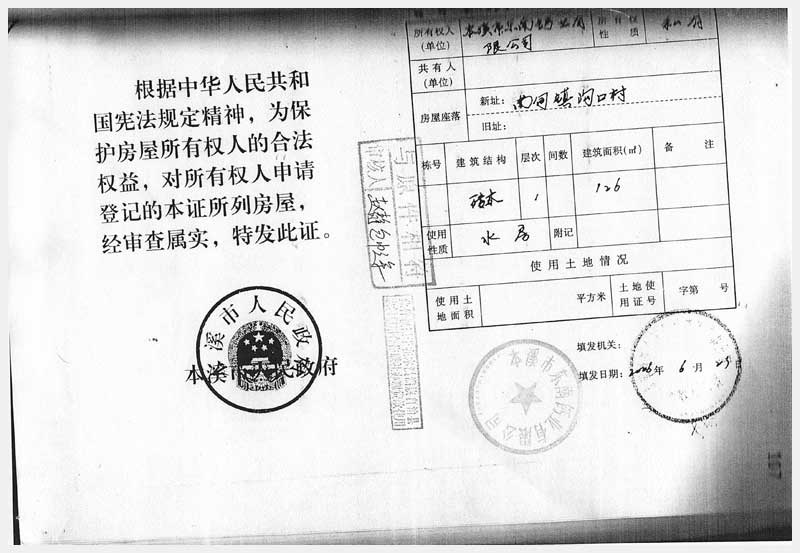 根据中华人民共和
国宪法规定精神，为保
护房屋所有权人的合法
权益，对所有权人申请
登记的本证所列房屋，
经审查属实，特发此证。
本溪市人民政府
本溪市人民政府
所有权人
(单位)
限公司
所有权
性质
共有人
(单位)
房屋座落
新址：南甸镇沟口村
旧址：
栋号 建筑结构 层次 间数 建筑面积(㎡) 备注
砖木 1 126
使用
性质
水房
附记
使用土地情况
使用土
地面积
平方米
土地使
用证号
字第 号
填发机关：
填发日期：2006年6月29日
与原件相符
审核人
本溪市东南药业有限公司
107